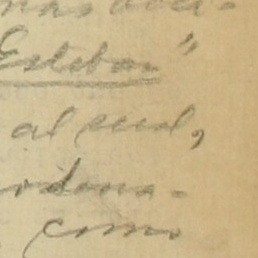 Esteban"
al sud,
ordena-
como